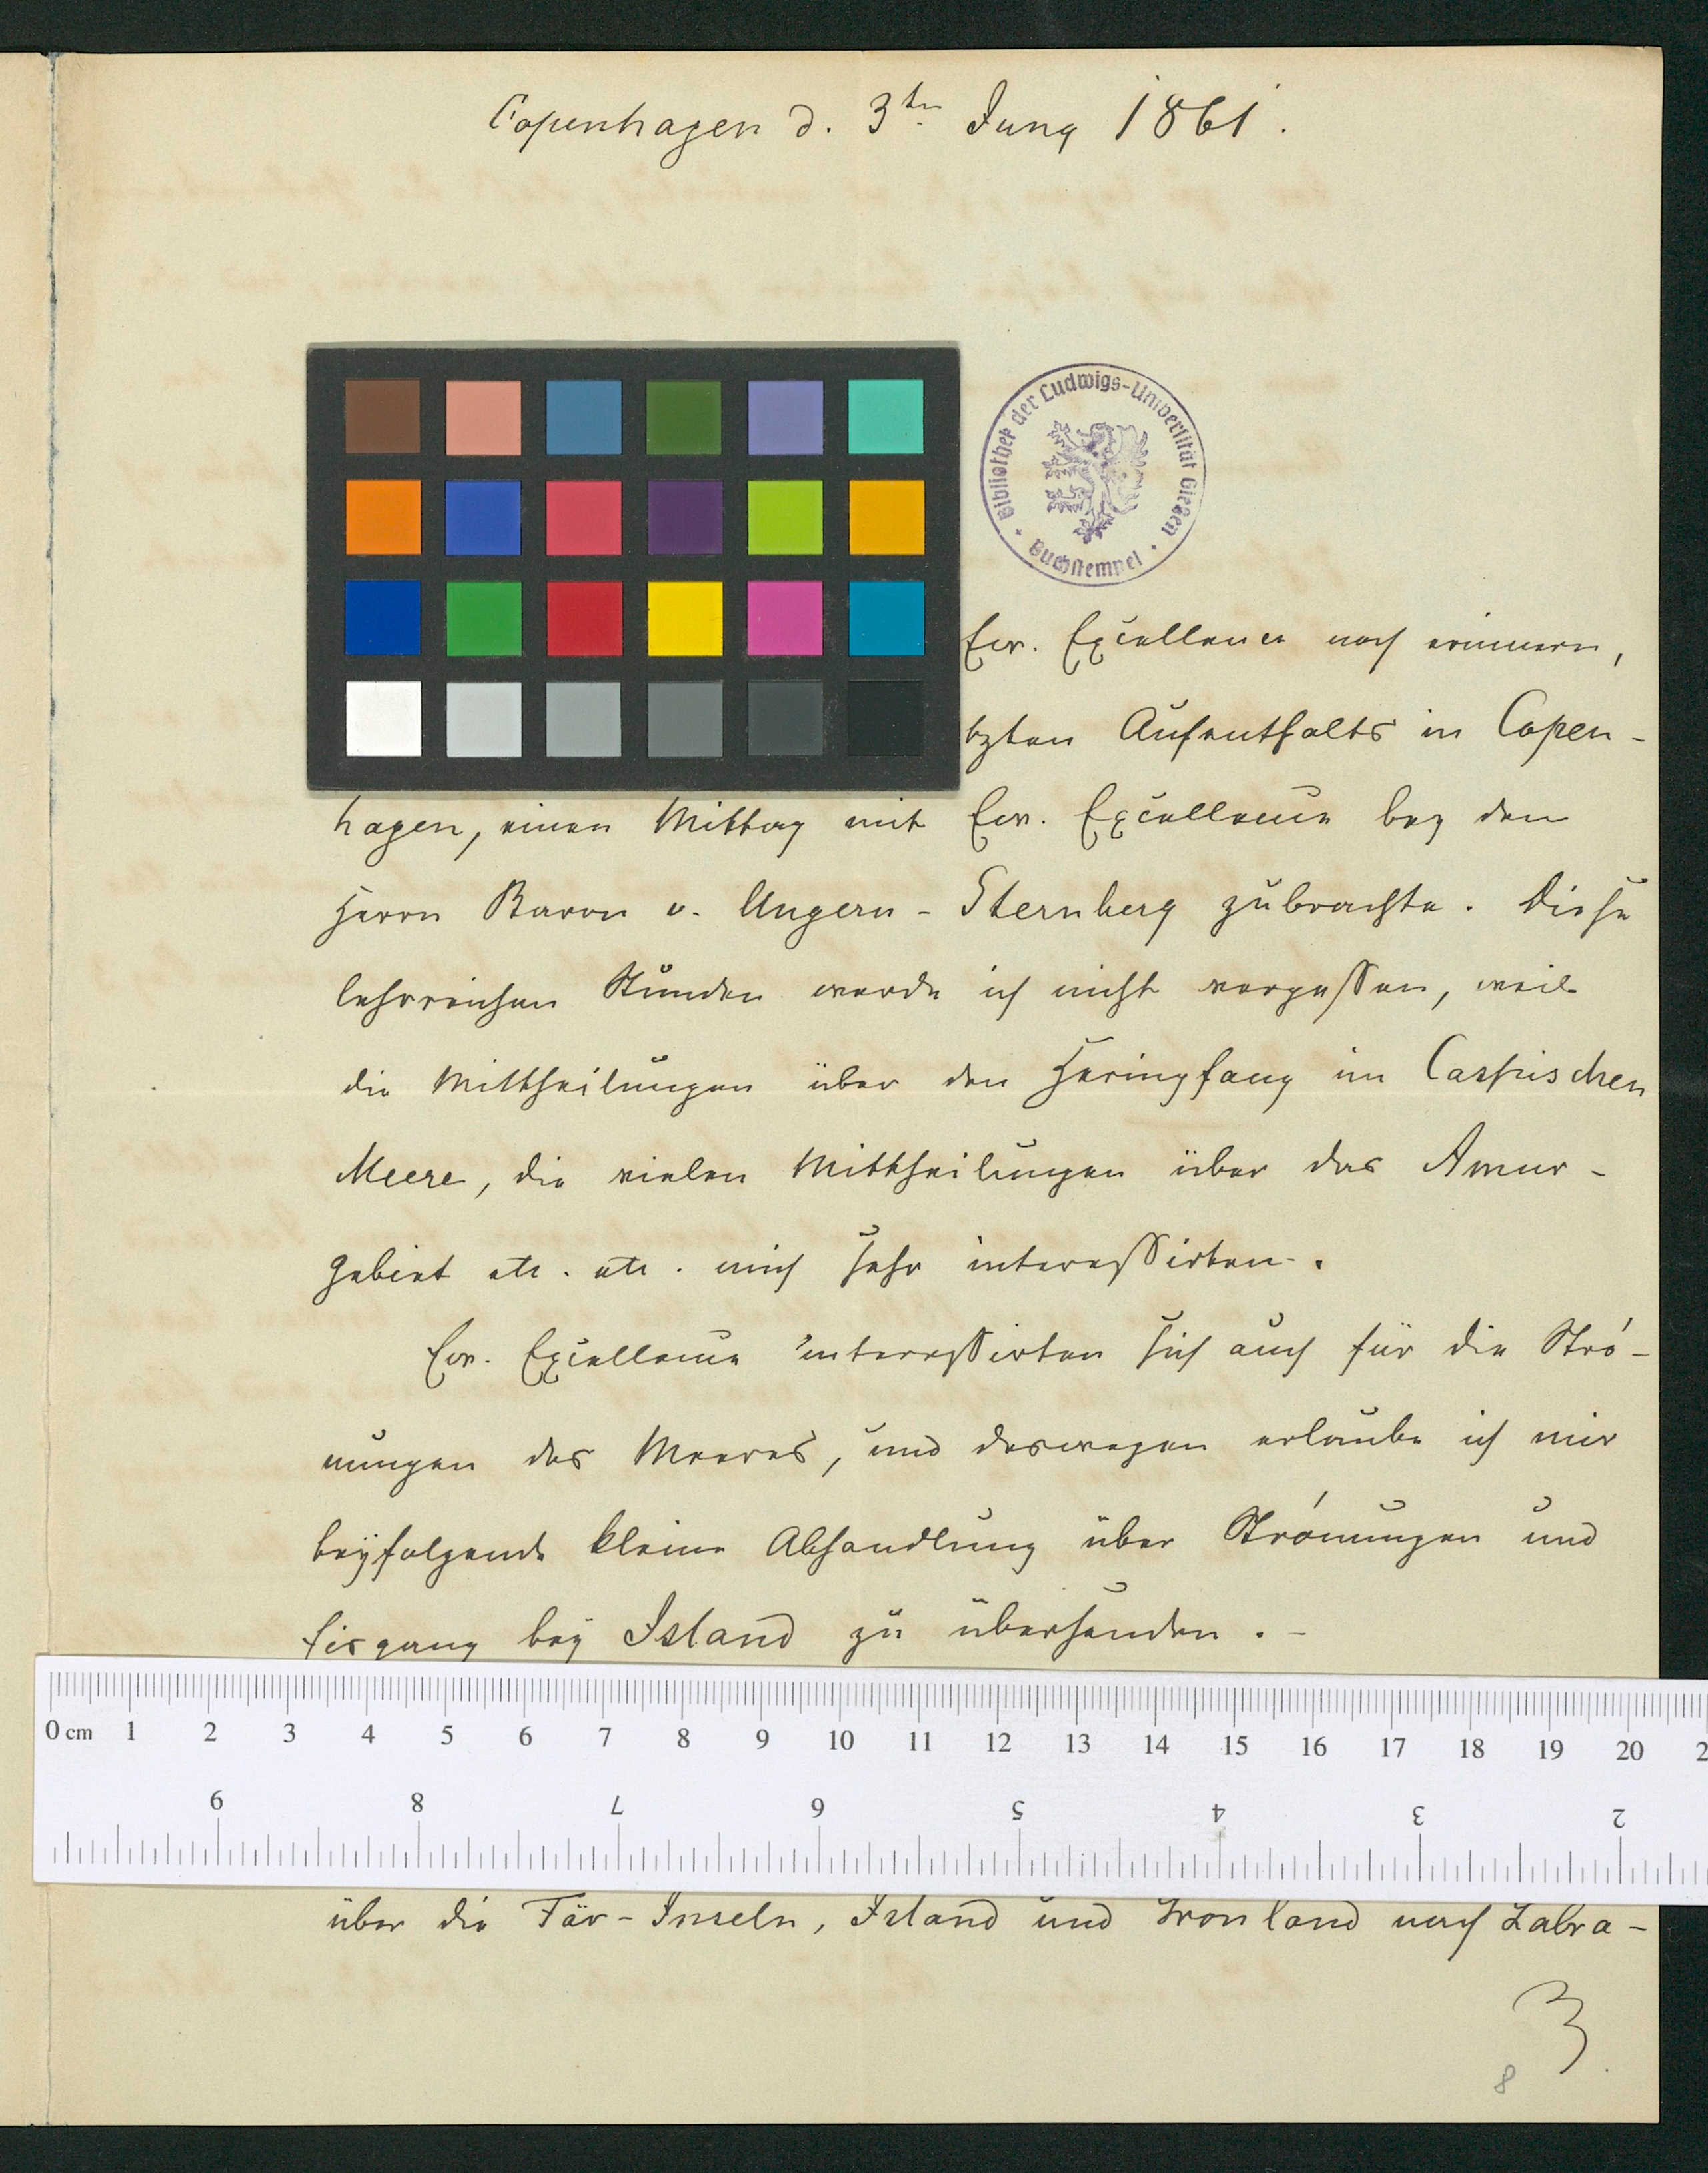 Copenhagen d. 3ten Juny 1861.
Bibliothek der Ludwigs-Universität Gießen
Buchstempel
Ew. Excellence noch erinnern,
tzten Aufenthalts in Copen-
hagen, einen Mittag mit Ew. Excellence bey den
Herrn Baron v. Ungern-Sternberg zubrachte. Diese
lehrreichen Stunden werde ich nicht vergessen, weil
die Mittheilungen über den Häringfang im Caspischen
Meere, die vielen Mittheilungen über das Amur-
gebiet etc. etc. mich sehr interessirten.
Ew. Excellence interessirten sich auch für die Strö-
mungen des Meeres, und deswegen erlaube ich mir
beyfolgende kleine Abhandlung über Strömungen und
Eisgang bey Island zu übersenden. -
0 cm 1 2 3 4 5 6 7 8 9 10 11 12 13 14 15 16 17 18 19 20 2
9 8 7 6 5 4 3 2
über die Fär-Inseln, Island und Grönland nach Labra-
3
8